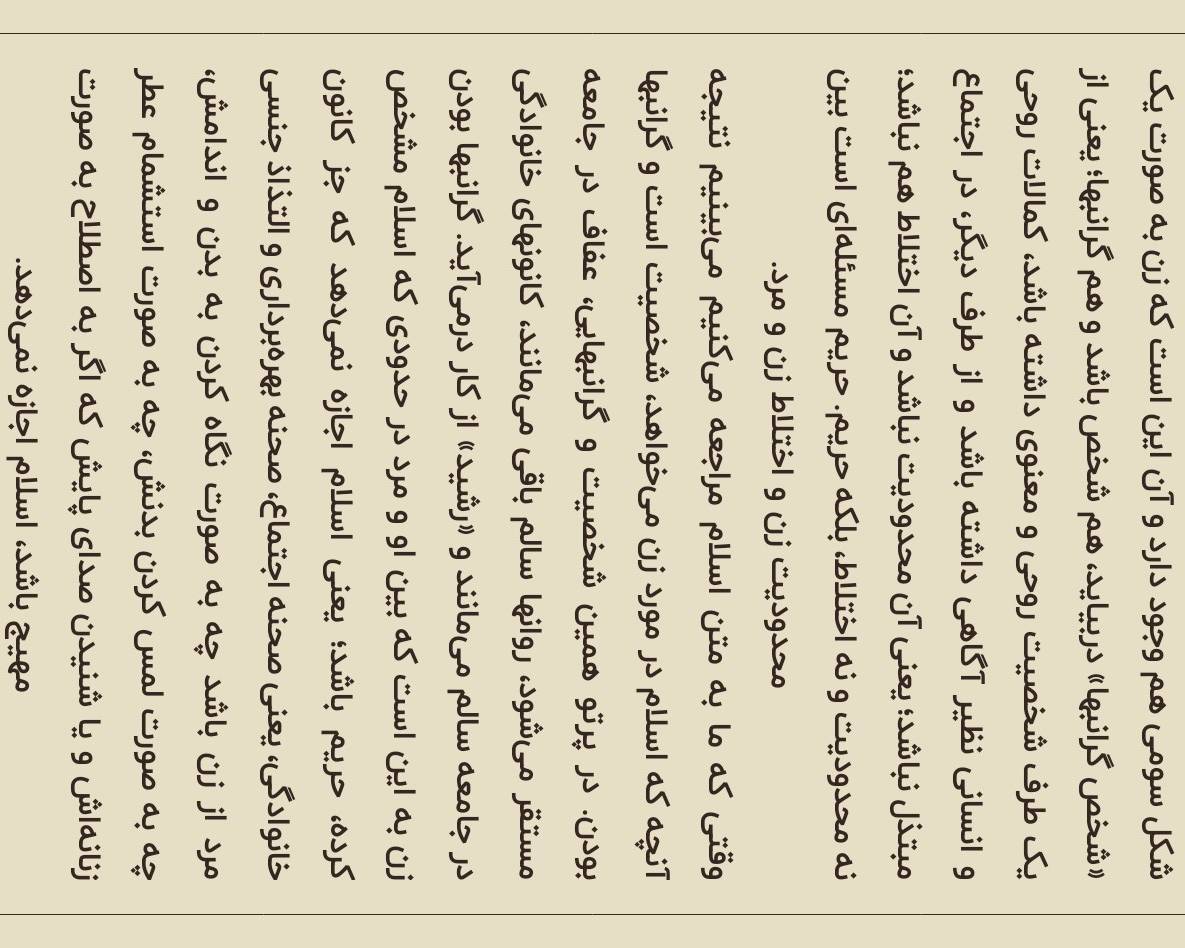 شکل سومی هم وجود دارد و آن این است که زن به صورت یک
«شخص گرانبها» دربیاید، هم شخص باشد و هم گرانبها؛ یعنی از
یک طرف شخصیت روحی و معنوی داشته باشد، کمالات روحی
و انسانی نظیر آگاهی داشته باشد و از طرف دیگر، در اجتماع
مبتذل نباشد؛ یعنی آن محدودیت نباشد و آن اختلاط هم نباشد؛
نه محدودیت و نه اختلاط، بلکه حریم. حریم مسئله‌ای است بین
محدودیت زن و اختلاط زن و مرد.
وقتی که ما به متن اسلام مراجعه می‌کنیم می‌بینیم نتیجه
آنچه که اسلام در مورد زن می‌خواهد، شخصیت است و گرانبها
بودن. در پرتو همین شخصیت و گرانبهایی، عفاف در جامعه
مستقر می‌شود، روانها سالم باقی می‌مانند، کانونهای خانوادگی
در جامعه سالم می‌مانند و «رشید» از کار درمی‌آید. گرانبها بودن
زن به این است که بین او و مرد در حدودی که اسلام مشخص
کرده، حریم باشد؛ یعنی اسلام اجازه نمی‌دهد که جز کانون
خانوادگی، یعنی صحنه اجتماع، صحنه بهره‌برداری و التذاذ جنسی
مرد از زن باشد چه به صورت نگاه کردن به بدن و اندامش،
چه به صورت لمس کردن بدنش، چه به صورت استشمام عطر
زنانه‌اش و یا شنیدن صدای پایش که اگر به اصطلاح به صورت
مهیج باشد، اسلام اجازه نمی‌دهد.